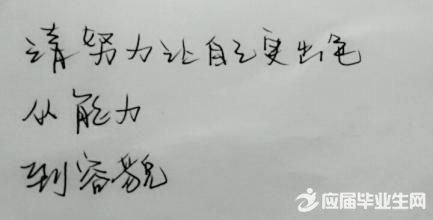 请努力让自己更出色
从能力
到容貌
应届毕业生网